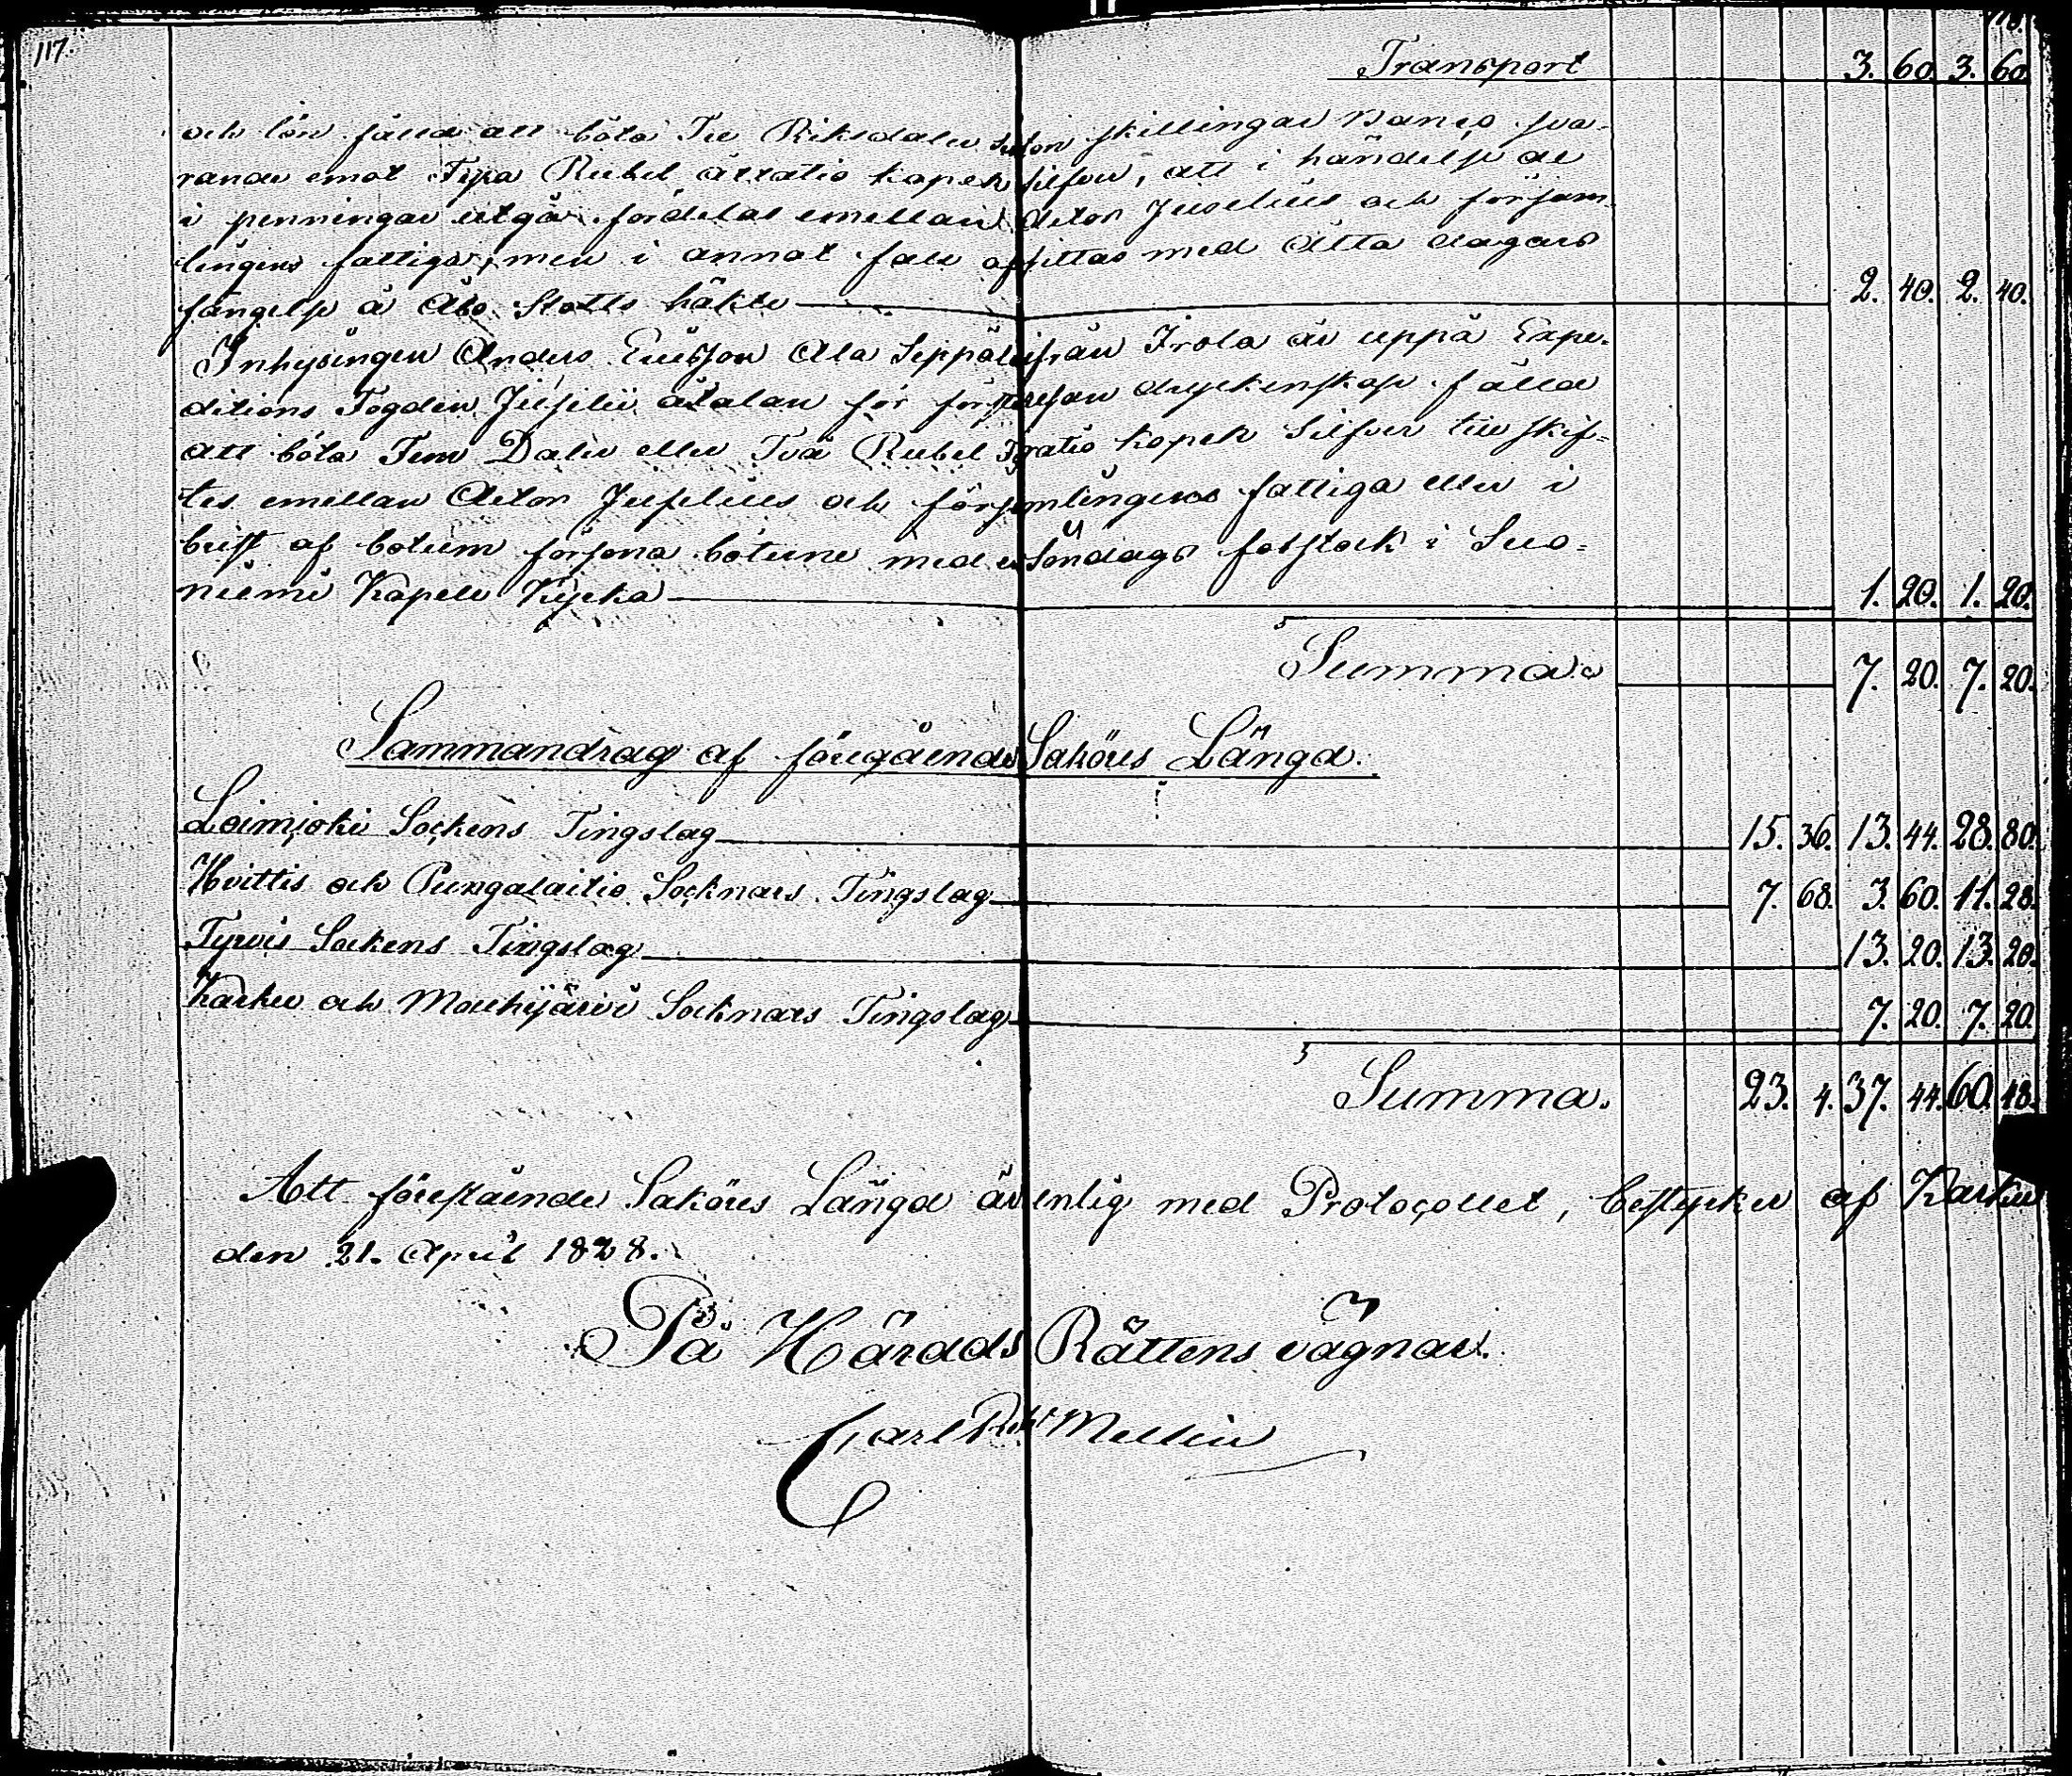 117.
118.
Transport 3. 60. 3. 60.
och lön fälld att böta Tre Riksdaler sexton skillingar Banco sva-
rande emot Fyra Rubel åttatio kopek silfver, att i händelse de
i penningar utgå fördelas emellan Actor Juselius och försam-
lingens fattiga, men i annat fall afsittas med Åtta dagars
fängelse å Åbo Slotts häkte 2. 40. 2. 40.
Inhysingen Anders Ericsson Ala Seppälä ifrån Irola är uppå Expe-
ditions Fogden Juselii åtalan för förseelsan dryckenskap fälld
att böta Fem Daler eller Två Rubel Fyratio kopek Silfver till skif-
tes emellan Actor Juselius och församlingens fattiga eller i
brist af botum försona böterne med en Söndags fotstock i Suo-
niemi Kapell Kyrka 1. 20. 1. 20.
Summa 7. 20. 7. 20.
Sammandrag af föregående Saköres Längd.
Loimjoki Sockens Tingslag 15. 36. 13. 44. 28. 80.
Hvittis och Pungalaitio Socknars Tingslag 7. 68. 3. 60. 11. 28.
Tyrvis Sockens Tingslag 13. 20. 13. 20.
Karku och Mouhijärvi Socknars Tingslag 7. 20. 7. 20.
Summa. 23. 4. 37. 44. 60. 48.
Att förestående Saköres Längd är enlig med Protocollet, bestyrker af Karku
den 21. April 1828.
På Härads Rättens vägnar.
Carl Rob Mellin